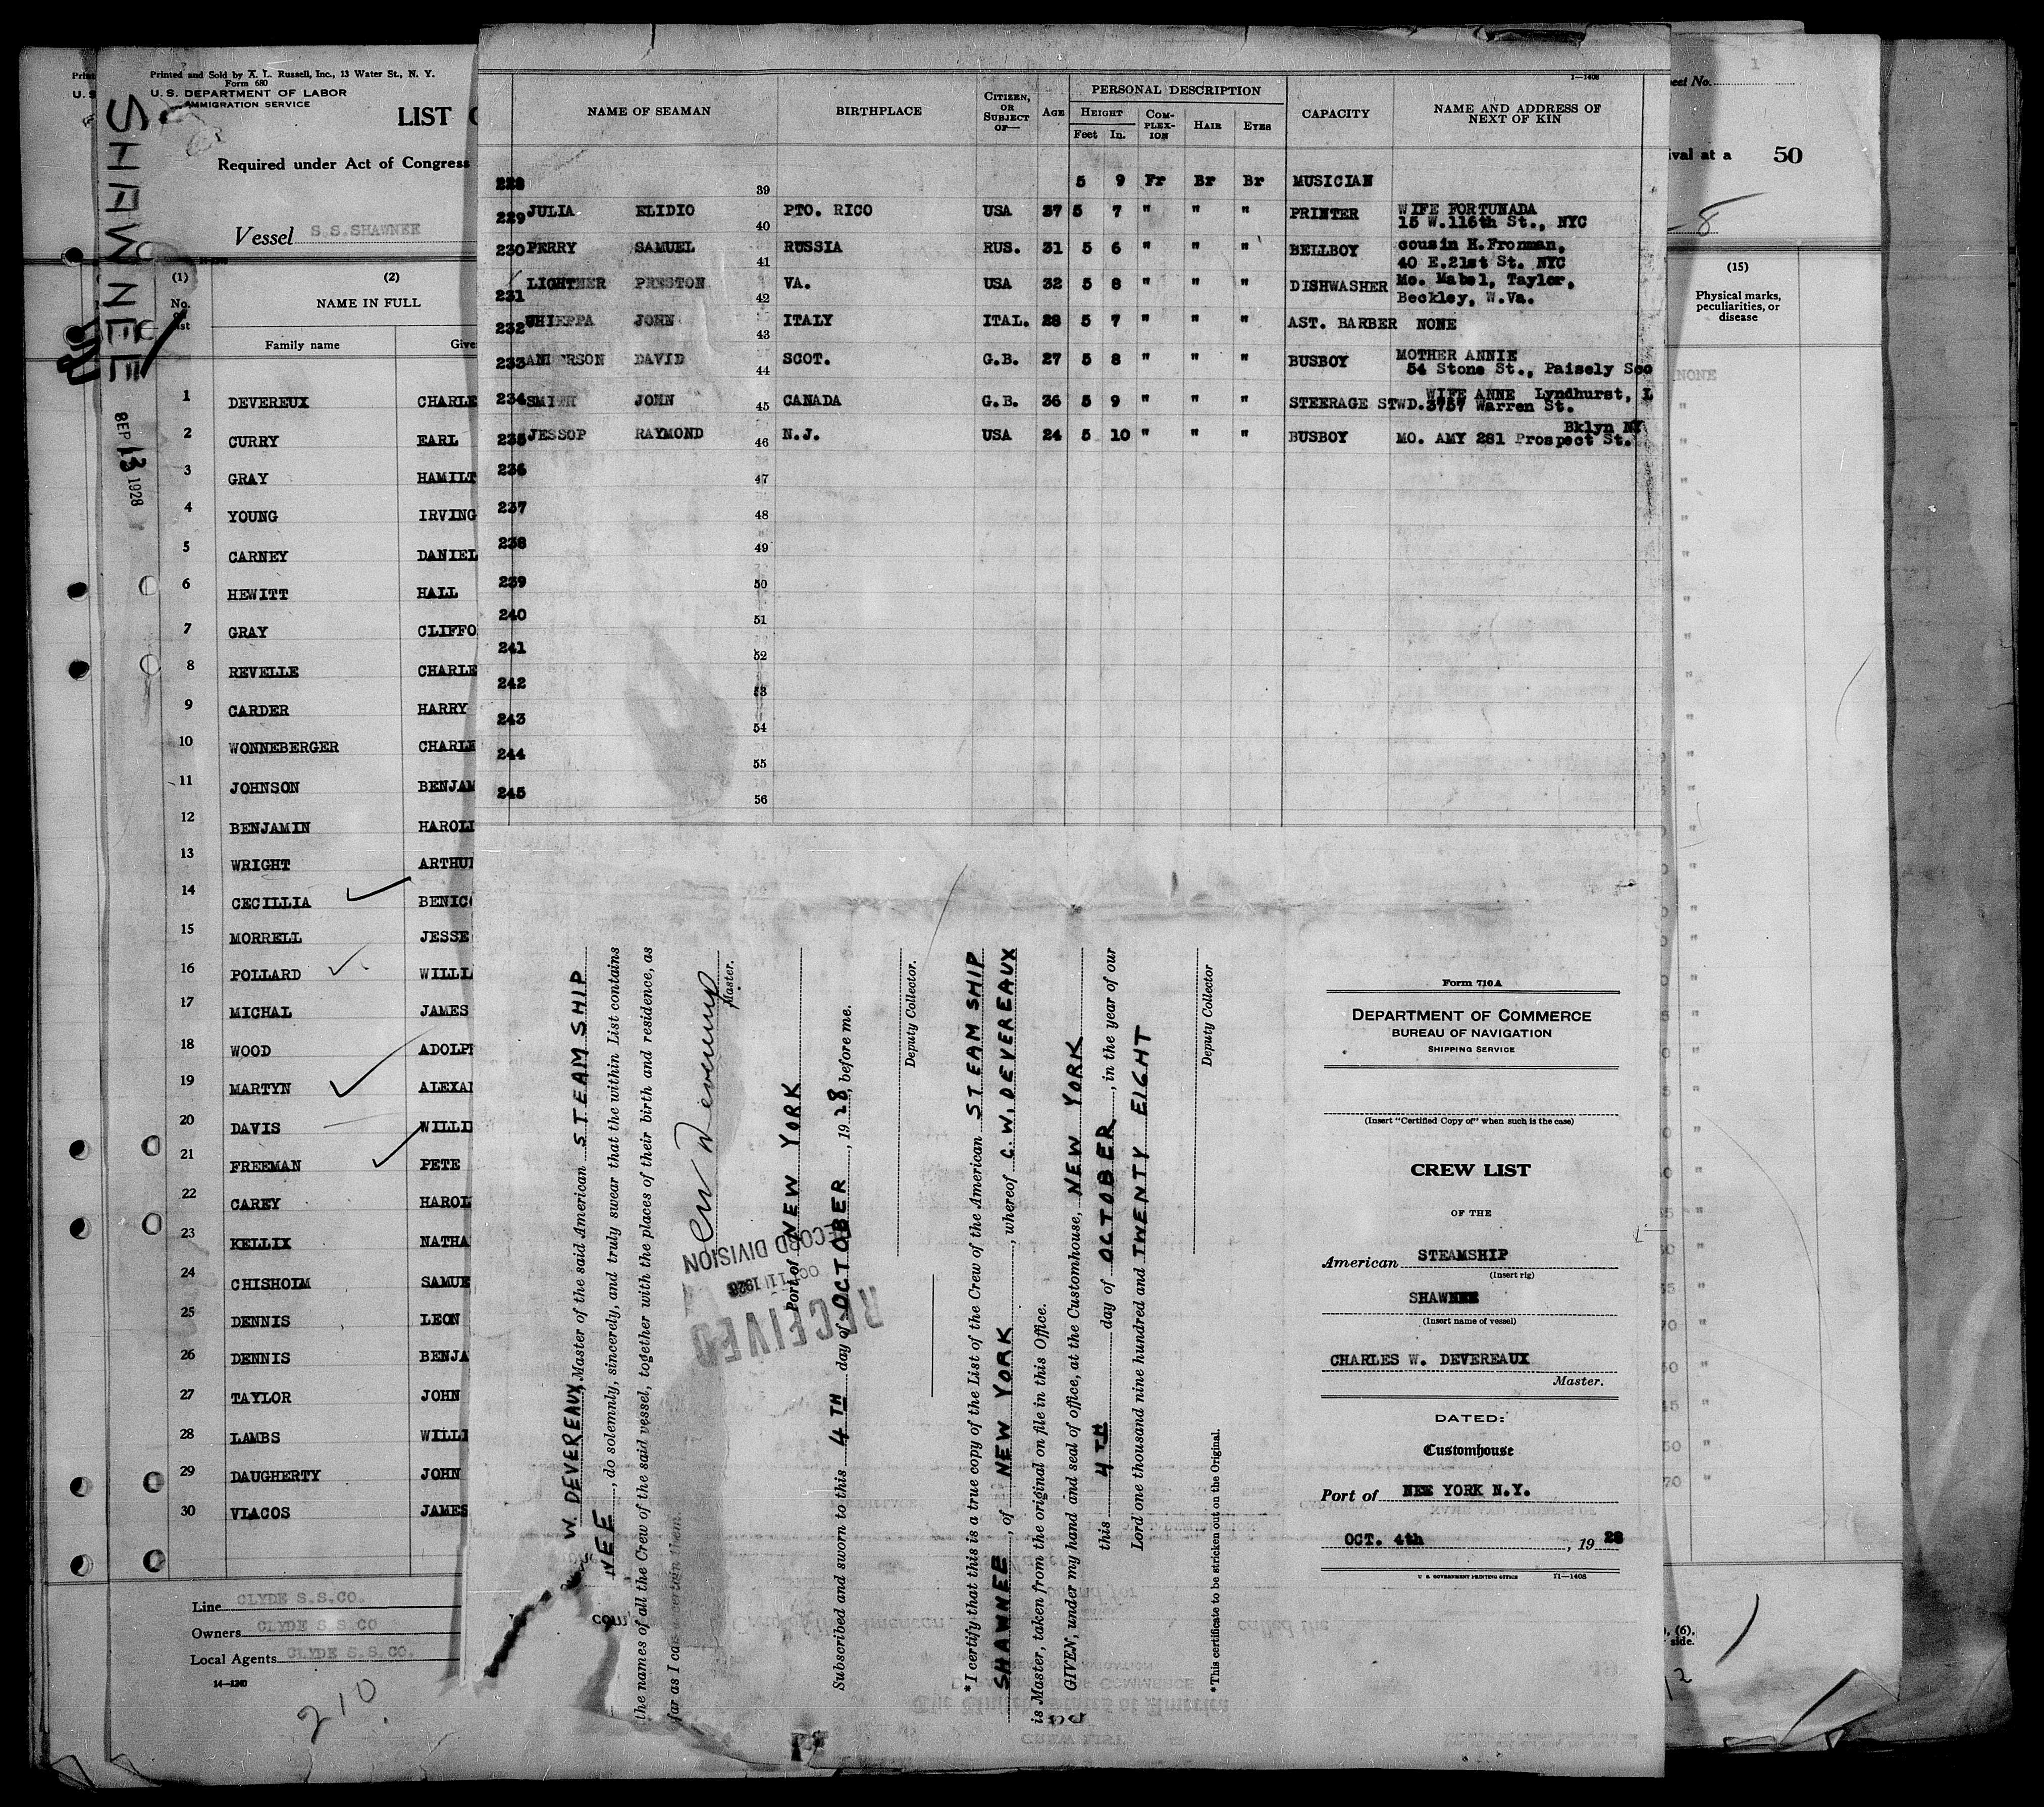 Printed and Sold by A. L. Russell, Inc., 13 Water St., N. Y.
Form 680
U. S. DEPARTMENT OF LABOR
IMMIGRATION SERVICE
LIST
Required under Act of Congress
Vessel S.S.SHAWNEE
SHAWNEE
SEP 13 1928
(1) (2)
No. NAME IN FULL
Family name Give
1 DEVEREUX CHARLE
2 CURRY EARL
3 GRAY HAMILT
4 YOUNG IRVING
5 CARNEY DANIEL
6 HEWITT HALL
7 GRAY CLIFFO
8 REVELLE CHARLE
9 CARDER HARRY
10 WONNEBERGER CHARLE
11 JOHNSON BENJAM
12 BENJAMIN HAROL
13 WRIGHT ARTHU
14 CECILLIA BENIC
15 MORRELL JESSE
16 POLLARD WILLI
17 MICHAL JAMES
18 WOOD ADOLP
19 MARTYN ALEXA
20 DAVIS WILLI
21 FREEMAN PETE
22 CAREY HAROL
23 KELLIX NATHA
24 CHISHOIM SAMUE
25 DENNIS LEON
26 DENNIS BENJA
27 TAYLOR JOHN
28 LAMBS WILLI
29 DAUGHERTY JOHN
30 VLACOS JAMES
Line CLYDE S.S.CO.
Owners CLYDE S.S CO
Local Agents CLYDE S.S.CO.
14—1240
210
1—1408
NAME OF SEAMAN BIRTHPLACE CITIZEN, OR SUBJECT OF— AGE PERSONAL DESCRIPTION CAPACITY NAME AND ADDRESS OF NEXT OF KIN
HEIGHT COM-PLEX-ION HAIR EYES
Feet In.
228 39 5 9 Fr Br Br MUSICIAN
229 JULIA ELIDIO 40 PTO. RICO USA 37 5 7 " " " PRINTER WIFE FORTUNADA
15 W.116th St., NYC
230 PERRY SAMUEL 41 RUSSIA RUS. 31 5 6 " " " BELLBOY cousin H.Fronman,
40 E.21st St. NYC
231 LIGHTNER PRESTON 42 VA. USA 32 5 8 " " " DISHWASHER Mo. Mabel, Taylor,
Beckley, W.Va.
232 JOHN 43 ITALY ITAL. 28 5 7 " " " AST. BARBER NONE
233 ANDERSON DAVID 44 SCOT. G.B. 27 5 8 " " " BUSBOY MOTHER ANNIE
54 Stone St., Paisely Sco
234 SMITH JOHN 45 CANADA G.B. 36 5 9 " " " STEERAGE STWD. WIFE ANNE Lyndhurst, L
3757 Warren St.
235 JESSOP RAYMOND 46 N.J. USA 24 5 10 " " " BUSBOY MO. AMY 281 Prospect St.
Bklyn NY
236 47
237 48
238 49
239 50
240 51
241 52
242 53
243 54
244 55
245 56
W. DEVEREAUX, Master of the said American STEAMSHIP
NEE, do solemnly, sincerely, and truly swear that the within List contains
the names of all the Crew of the said vessel, together with the places of their birth and residence, as
far as I can ascertain them.
Master.
Port of NEW YORK
Subscribed and sworn to this 4TH day of OCTOBER, 1928, before me.
Deputy Collector.
RECEIVED
OCT 11 1928
RECORD DIVISION
*I certify that this is a true copy of the List of the Crew of the American STEAMSHIP
SHAWNEE, of NEW YORK, whereof C.W.DEVEREAUX
is Master, taken from the original on file in this Office.
GIVEN, under my hand and seal of office, at the Customhouse, NEW YORK
this 4TH day of OCTOBER, in the year of our
Lord one thousand nine hundred and TWENTY EIGHT
Deputy Collector
*This certificate to be stricken out on the Original.
Form 710A
DEPARTMENT OF COMMERCE
BUREAU OF NAVIGATION
SHIPPING SERVICE
(Insert "Certified Copy of" when such is the case)
CREW LIST
OF THE
American STEAMSHIP
(Insert rig)
SHAWNEE
(Insert name of vessel)
CHARLES W. DEVEREAUX
Master.
DATED:
Customhouse
Port of NEE YORK N.Y.
OCT. 4th, 19 28
U. S. GOVERNMENT PRINTING OFFICE 11—1408
eet No. 1
ival at a 50
8
(15)
Physical marks, peculiarities, or disease
NONE
(6).
side.